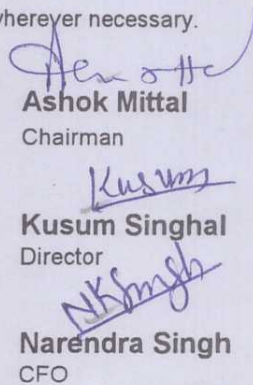 wherever necessary.
Ashok Mittal
Chairman
Kusum
Kusum Singhal
Director
NKSingh
Narendra Singh
CFO